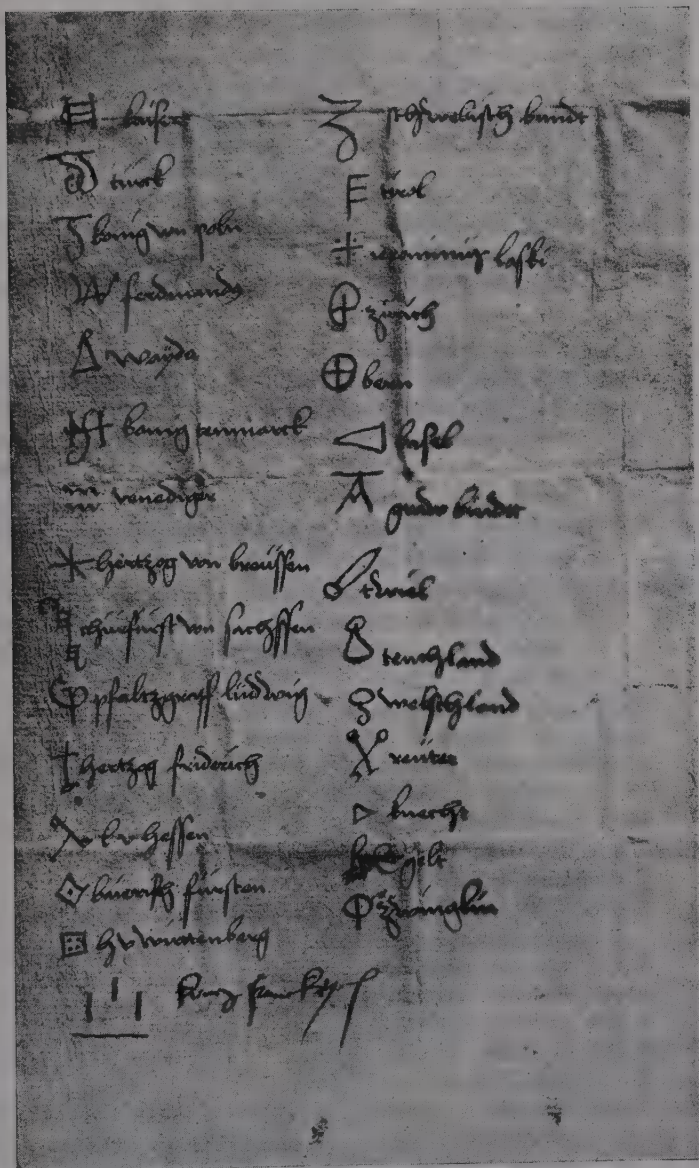 keiser
türck
könig von poln
ferdinandus
wayda
könig tenmarck
venediger
hertzog von breüssen
churfürst von sachssen
pfaltzgraff ludwig
hertzog friderich
l v hessen
büerisch fürsten
h v wirtenberg
schwebisch bundt
tirol
ieronimus laski
zürich
bern
basel
bündt
twiel
teuchland
welschland
reüter
knecht
gelt
zwinglin